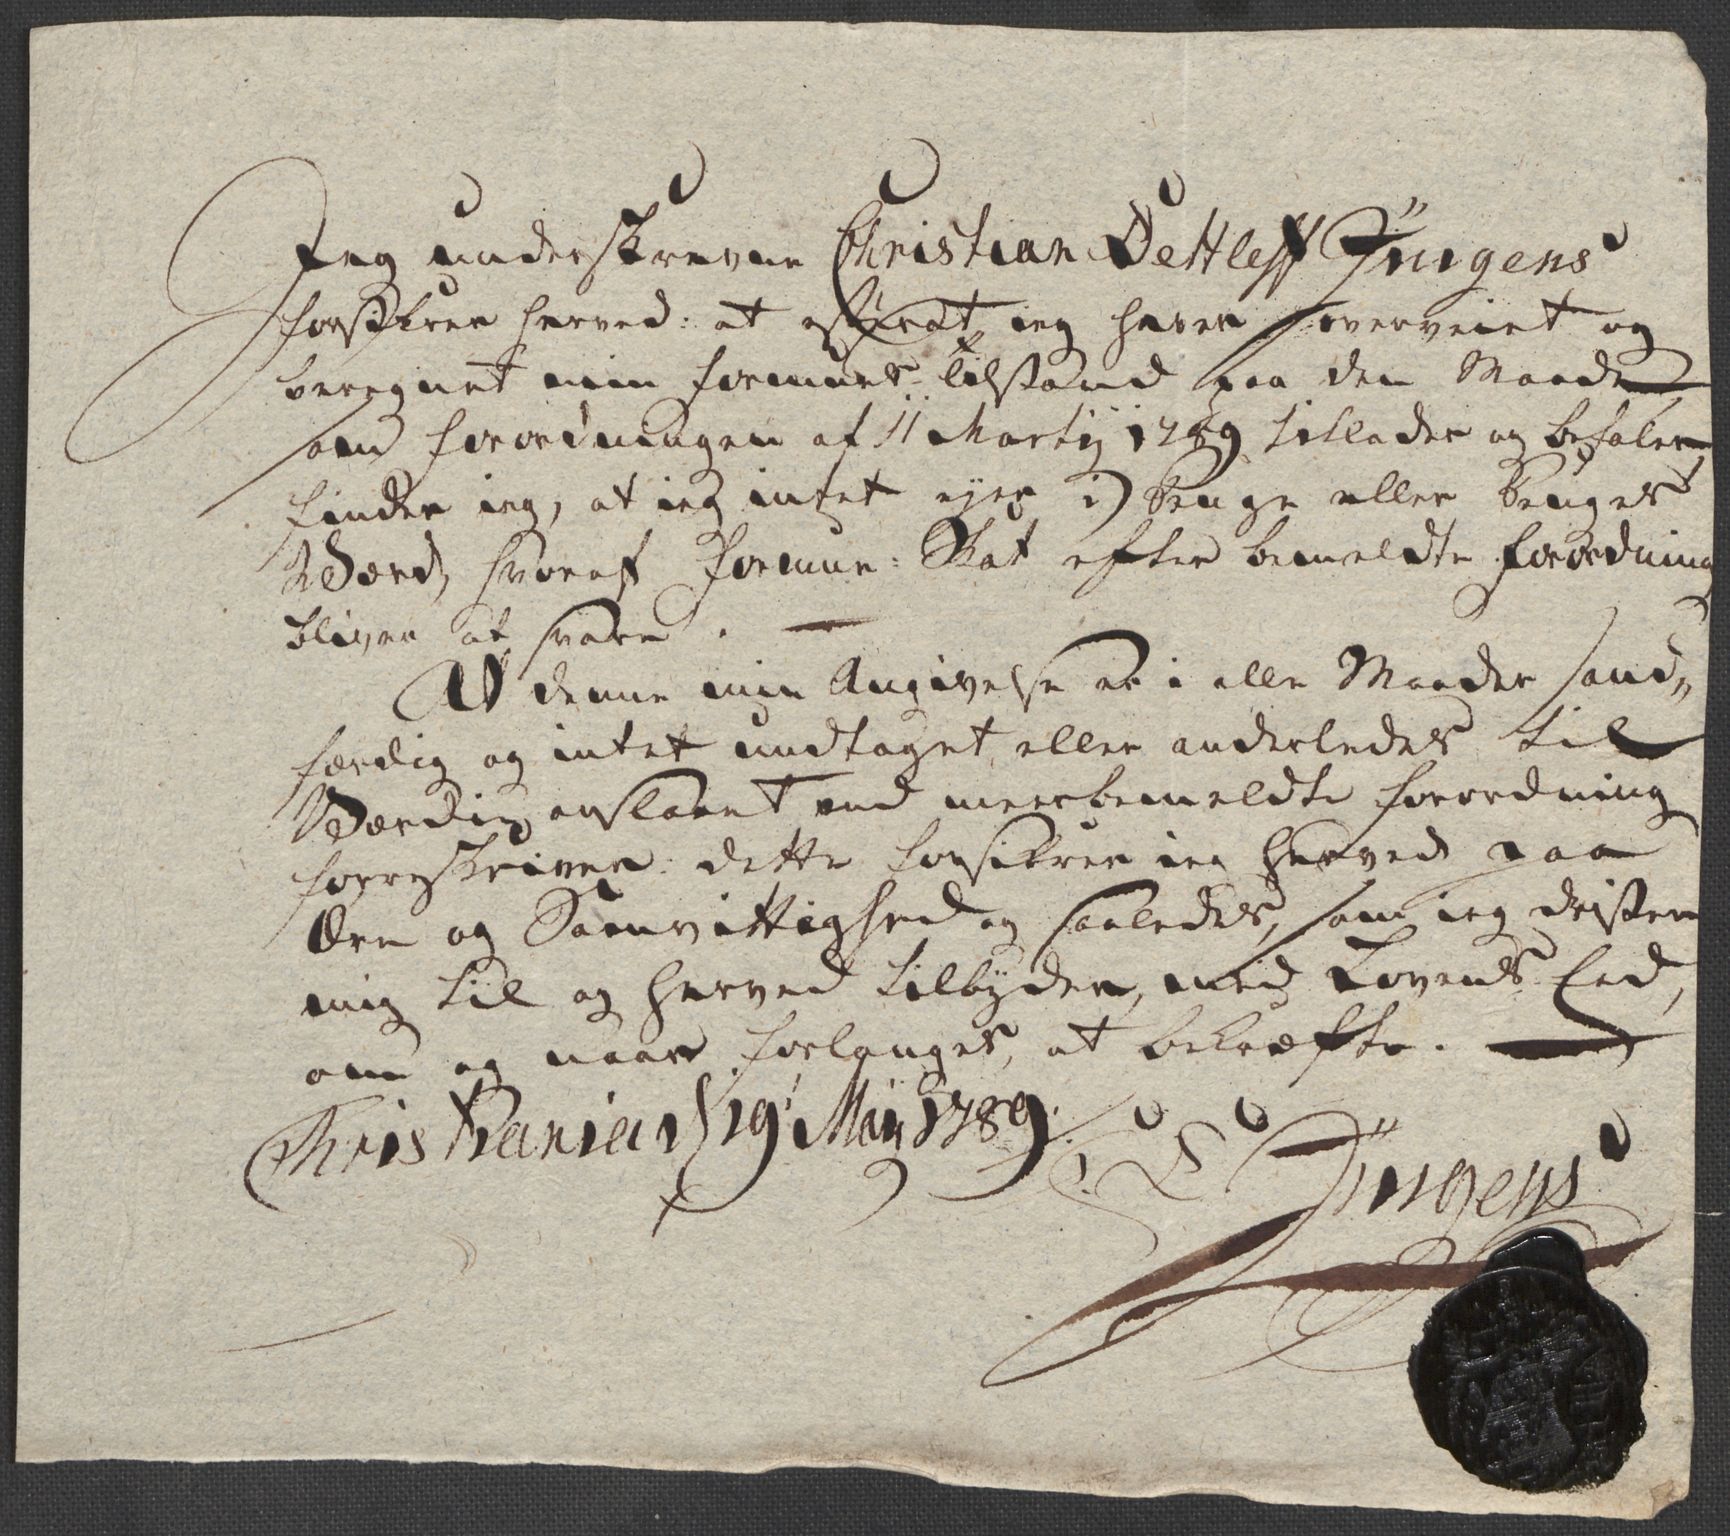 Jeg underskrevne Christian Dettleff Jürgens
forsikrer herved: at efterat jeg haver overveiet og
beregnet min Formues-Tilstand paa den Maade
som Forordningen af 11 Martij 1789 tillader og befaler,
finder jeg, at jeg intet ejer i Penge eller Penges
Værd, hvoraf Formue-Skat efter bemeldte Forordning
bliver at svare. —
At denne min Angivelse er i alle Maader sand-
færdig og intet undtaget eller anderledes til
Værdie anslaaet end meerbemeldte Forordning
foreskriver: dette forsikrer jeg herved paa
Ære og Samvittighed og saaledes, som jeg drister
mig til og herved tilbyder, med Lovens Eed,
om og naar forlanges, at bekræfte. —
Christiania 19 May 1789.
C. D. Jürgens